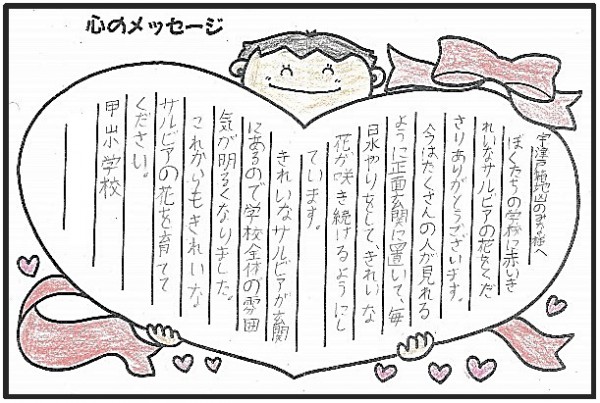 心のメッセージ
宇津戸のみな様へ
ぼくたちの学校に赤いき
れいなサルビアの花をくだ
さりありがとうございます。
今はたくさんの人が見れる
ように正面玄関に置いて、毎
日水やりをして、きれいな
花が咲き続けるようにし
ています。
きれいなサルビアが玄関
にあるので学校全体の雰囲
気が明るくなりました。
これからもきれいな
サルビアの花を育てて
ください。
甲山小学校